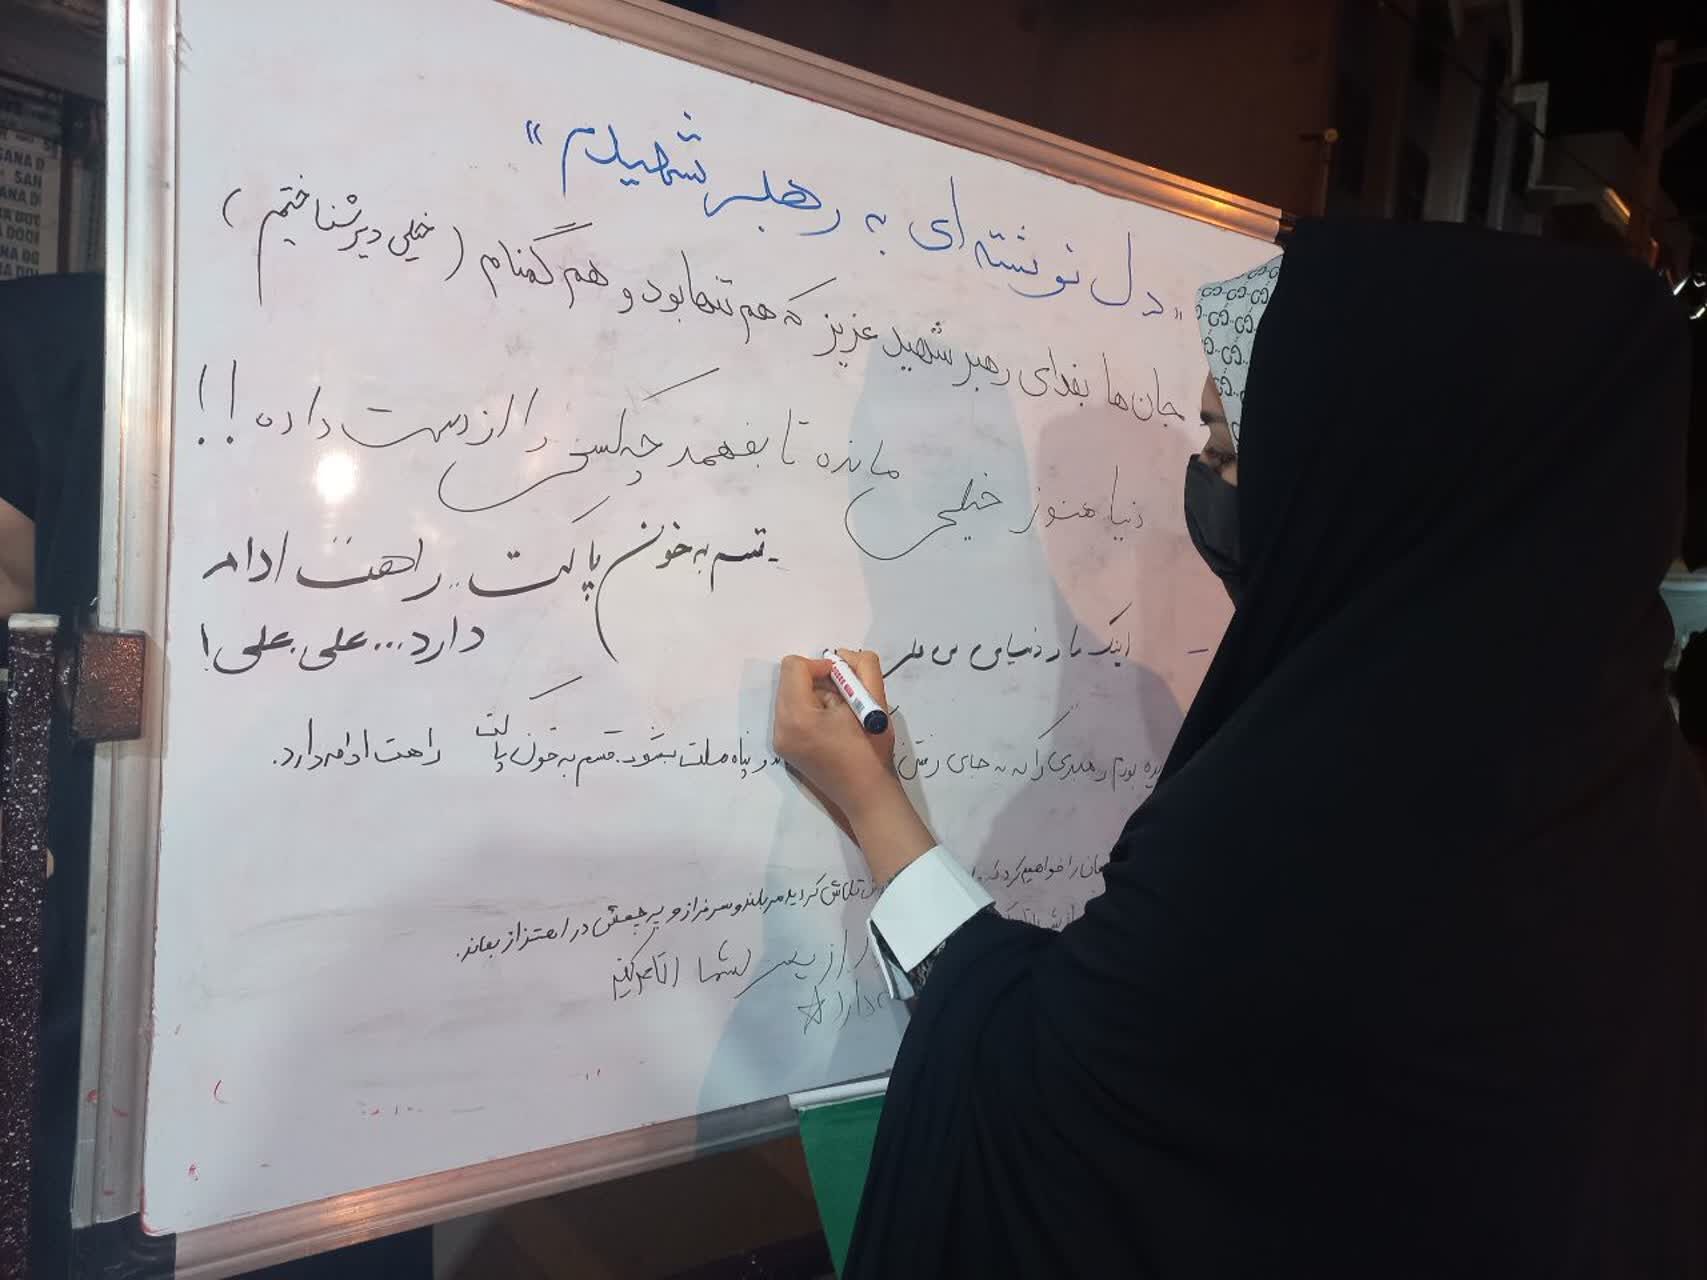 «دل نوشته ای به رهبر شهیدم»
جان ها بفدای رهبر شهید عزیز که هم تنها بود و هم گمنام (خیلی دیر شناختیم)
دنیا هنوز خیلی مانده تا بفهمد چه کسی را از دست داده!!
- قسم به خون پاکت.. راهت ادامه
دارد... علی.علی!
- اینک ما و دنیای بی
بودم رهبری را که به جای رفتن پناه ملت بشود. قسم به خون پاکت راهت ادامه دارد.
را خواهیم کرد
تلاش کردید سربلند و سرفراز و پرچمش در اهتزاز بماند.
از پسر شما
SANA D
SAN
ANA D